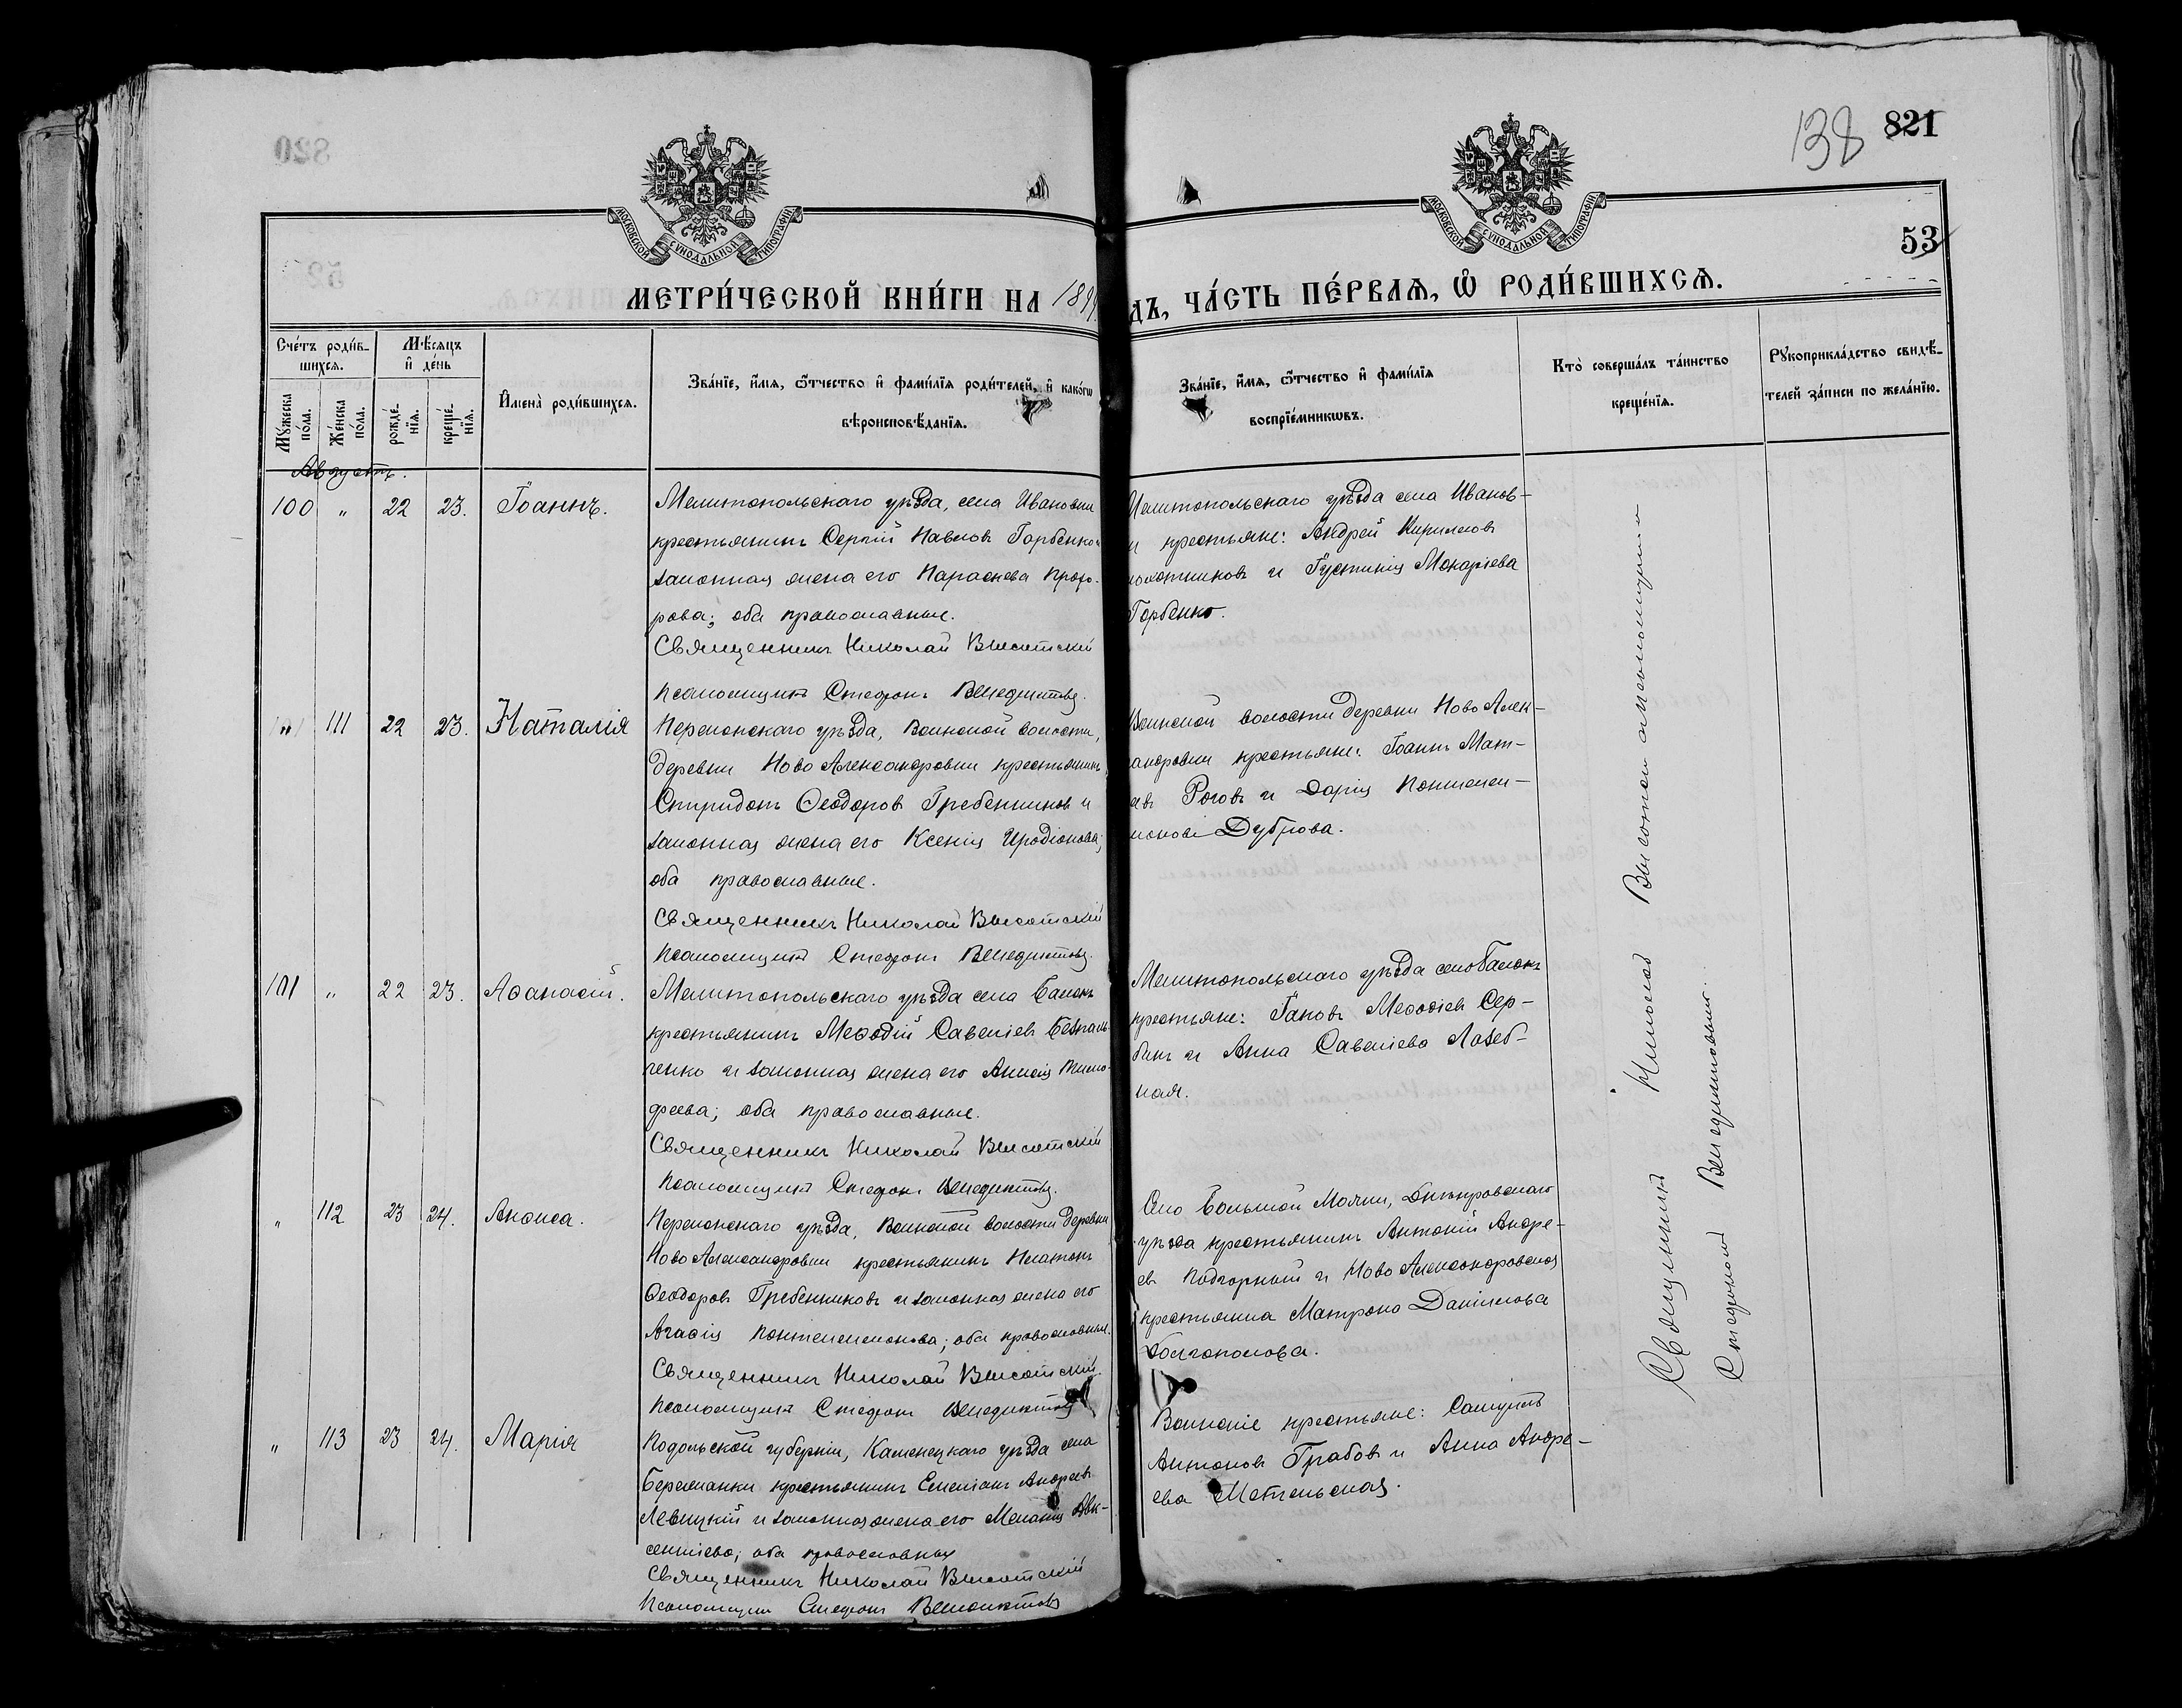 138 821
МОСКОВСКОЙ СѴНОДАЛЬНОЙ ТИПОГРАФІИ
МОСКОВСКОЙ СѴНОДАЛЬНОЙ ТИПОГРАФІИ
53
МЕТРИ́ЧЕСКОЙ КНИ́ГИ НА 189
ДЪ, ЧА́СТЬ ПЕ́РВАѦ, Ѡ҆ РОДИ́ВШИХСѦ.
Сче́тъ роди́в-
шихсѧ.
Мꙋ́жеска по́ла.
Же́нска по́ла.
Мѣ́сѧцъ
и҆ де́нь
рожде́-
нїѧ.
креще́-
нїѧ.
И҆мена̀ роди́вшихсѧ.
Зва́нїе, и҆́мѧ, ѻ҆́тчество и҆ фами́лїѧ роди́телей, и҆ како́гѡ
вѣроисповѣ́данїѧ.
Зва́нїе, и҆́мѧ, ѻ҆́тчество и҆ фами́лїѧ
воспрїе́мникѡвъ.
Кто̀ соверша́лъ та́инство
креще́нїѧ.
Рꙋкоприкла́дство свидѣ́-
телей за́писи по жела́нїю.
Августъ.
100 " 22 23. Іоаннъ.
Мелитопольскаго уѣзда, села Ивановки
крестьянинъ Сергій Павловъ Горбенко и
законная жена его Параскева
рова; оба православные.
Священникъ Николай Высотскій
Псаломщикъ Стефанъ Венедиктовъ.
Мелитопольскаго уѣзда села Иванов-
и крестьяне: Андрей Кирилловъ
и Іустинія Макаріева
Горбенко.
" 111 22 23. Наталія
Перекопскаго уѣзда, Воинской волости,
деревни Ново Александровки крестьянинъ
Спиридонъ Ѳеодоровъ Гребенниковъ и
законная жена его Ксенія Иродіонова;
оба православные.
Священникъ Николай Высотскій
Псаломщикъ Стефанъ Венедиктовъ.
Воинской волости деревни Ново Алек-
андровки крестьяне: Іоаннъ Мат-
евъ Роговъ и Дарія Пантелеи-
монова Дуброва.
101 " 22 23. Аѳанасій.
Мелитопольскаго уѣзда села Балокъ
крестьянинъ Меѳодій Савеліевъ Безпаль-
ченко и законная жена его Анисія Тимо-
феева; оба православные.
Священникъ Николай Высотскій
Псаломщикъ Стефанъ Венедиктовъ.
Мелитопольскаго уѣзда села Балокъ
крестьяне: Іаковъ Меѳодіевъ Сер-
бинъ и Анна Савеліева Лазеб-
ная.
" 112 23 24. Анѳиса.
Перекопскаго уѣзда, Воинской волости деревни
Ново Александровки крестьянинъ Платонъ
Ѳеодоровъ Гребенниковъ и законная жена его
Агаѳія Пантелеимонова; оба православные.
Священникъ Николай Высотскій.
Псаломщикъ Стефанъ Венедиктовъ
Села Большой Маячки, Днѣпровскаго
уѣзда крестьянинъ Антоній Андре-
евъ Подгорный и Ново Александровская
крестьянка Матрона Даніилова
Долгополова.
" 113 23 24. Марія
Подольской губерніи, Каменецкаго уѣзда села
крестьянинъ Емеліанъ Андреевъ
Левицкій и законная жена его Меланія Авк-
сентіева; оба православныя
Священникъ Николай Высотскій
Псаломщикъ Стефанъ Венедиктовъ
Воинскіе крестьяне: Самуилъ
Антоновъ Грабовъ и Анна Андре-
ева Метельская.
Священникъ Николай Высотскій съ псаломщикомъ
Стефаномъ Венедиктовымъ.